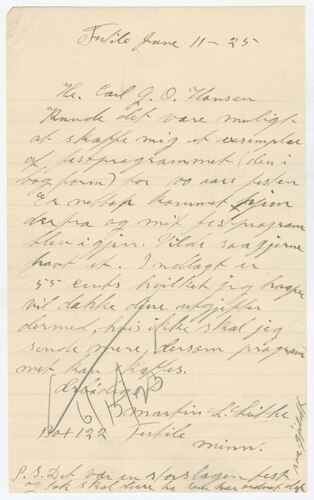 Fertile June 11 - 25
Hr. Carl G. O. Hansen
Kunde det være muligt
at skaffe mig et exsemplar
af festprogrammet (den i
bog form) for 100 aars festen
Er netop kommet hjem
derfra og mit festprogram
blev igjen. Vilde saa gjerne
havt et. Indlagt er
55 cents hvilket jeg haaper
vil dække dere udgifter
dermed, hvis ikke skal jeg
sende mere, dersom program
met kan skaffes.
Ærbødigst
Martin L.
Box 122 Fertile
Minn.
6/15/25
P.S. Det var en storslagen fest
og tak skal dere ha som har ordnet det